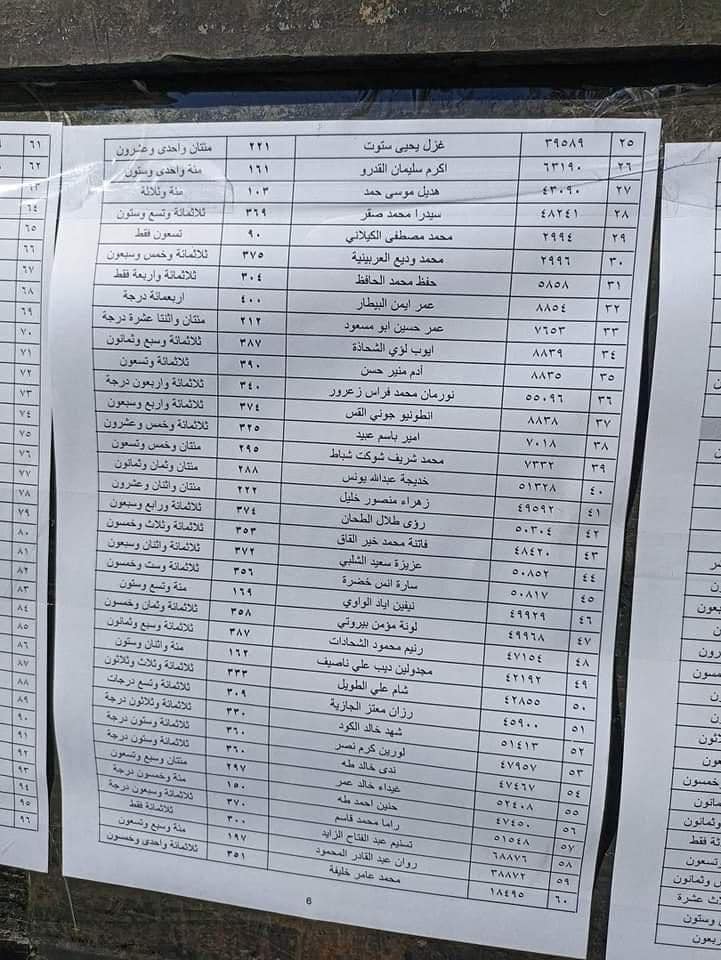 ٢٥ ٣٩٥٨٩ غزل يحيى ستوت ٢٢١ مئتان واحدى وعشرون
٢٦ ٦٣١٩٠ اكرم سليمان القدرو ١٦١ مئة واحدى وستون
٢٧ ٤٣٠٩٠ هديل موسى حمد ١٠٣ مئة وثلاثة
٢٨ ٤٨٢٤١ سيدرا محمد صقر ٣٦٩ ثلاثمائة وتسع وستون
٢٩ ٢٩٩٤ محمد مصطفى الكيلاني ٩٠ تسعون فقط
٣٠ ٢٩٩٦ محمد وديع العربينية ٣٧٥ ثلاثمائة وخمس وسبعون
٣١ ٥٨٥٨ حفظ محمد الحافظ ٣٠٤ ثلاثمائة واربعة فقط
٣٢ ٨٨٥٤ عمر ايمن البيطار ٤٠٠ اربعمائة درجة
٣٣ ٧٦٥٣ عمر حسين ابو مسعود ٢١٢ مئتان واثنتا عشرة درجة
٣٤ ٨٨٣٩ ايوب لؤي الشحاذة ٣٨٧ ثلاثمائة وسبع وثمانون
٣٥ ٨٨٣٥ آدم منير حسن ٣٩٠ ثلاثمائة وتسعون
٣٦ ٥٥٠٩٦ نورمان محمد فراس زعرور ٣٤٠ ثلاثمائة واربعون درجة
٣٧ ٨٨٣٨ انطونيو جوني القس ٣٧٤ ثلاثمائة واربع وسبعون
٣٨ ٧٠١٨ امير باسم عبيد ٣٢٥ ثلاثمائة وخمس وعشرون
٣٩ ٧٣٣٢ محمد شريف شوكت شباط ٢٩٥ مئتان وخمس وتسعون
٤٠ ٥١٣٢٨ خديجة عبدالله يونس ٢٨٨ مئتان وثمان وثمانون
٤١ ٤٩٥٩٢ زهراء منصور خليل ٢٢٢ مئتان واثنان وعشرون
٤٢ ٥٠٣٠٤ رؤى طلال الطحان ٣٧٤ ثلاثمائة ورابع وسبعون
٤٣ ٤٨٤٢٠ فاتنة محمد خير القاق ٣٥٣ ثلاثمائة وثلاث وخمسون
٤٤ ٥٠٨٥٢ عزيزة سعيد الشلبي ٣٧٢ ثلاثمائة واثنان وسبعون
٤٥ ٥٠٨١٧ سارة انس خضرة ٣٥٦ ثلاثمائة وست وخمسون
٤٦ ٤٩٩٢٩ نيفين اياد الواوي ١٦٩ مئة وتسع وستون
٤٧ ٤٩٩٦٨ لونة مؤمن بيروتي ٣٥٨ ثلاثمائة وثمان وخمسون
٤٨ ٤٧١٥٤ رنيم محمود الشحادات ٣٨٧ ثلاثمائة وسبع وثمانون
٤٩ ٤٢١٩٢ مجدولين ديب علي ناصيف ١٦٢ مئة واثنان وستون
٥٠ ٤٢٨٥٥ شام علي الطويل ٣٣٣ ثلاثمائة وثلاث وثلاثون
٥١ ٤٥٩٠٠ رزان معتز الجازية ٣٠٩ ثلاثمائة وتسع درجات
٥٢ ٥١٤١٣ شهد خالد الكود ٣٣٠ ثلاثمائة وثلاثون درجة
٥٣ ٤٧٩٥٧ لورين كرم نصر ٣٦٠ ثلاثمائة وستون درجة
٥٤ ٤٧٤٦٧ ندى خالد طه ٣٦٠ ثلاثمائة وستون درجة
٥٥ ٥٢٤٠٨ غيداء خالد عمر ٢٩٧ مئتان وسبع وتسعون
٥٦ ٤٧٤٥٠ حنين احمد طه ١٥٠ مئة وخمسون درجة
٥٧ ٥١٥٤٨ راما محمد قاسم ٣٧٠ ثلاثمائة وسبعون درجة
٥٨ ٦٨٨٧٦ تسنيم عبد الفتاح الزايد ٣٠٠ ثلاثمائة فقط
٥٩ ٣٨٨٧٢ روان عبد القادر المحمود ١٩٧ مئة وسبع وتسعون
٦٠ ١٨٤٩٥ محمد عامر خليفة ٣٥١ ثلاثمائة واحدى وخمسون
6
٦١
٦٢
٦٣
٦٤
٦٥
٦٦
٦٧
٦٨
٦٩
٧٠
٧١
٧٢
٧٣
٧٤
٧٥
٧٦
٧٧
٧٨
٧٩
٨٠
٨١
٨٢
٨٣
٨٤
٨٥
٨٦
٨٧
٨٨
٨٩
٩٠
٩١
٩٢
٩٣
٩٤
٩٥
٩٦